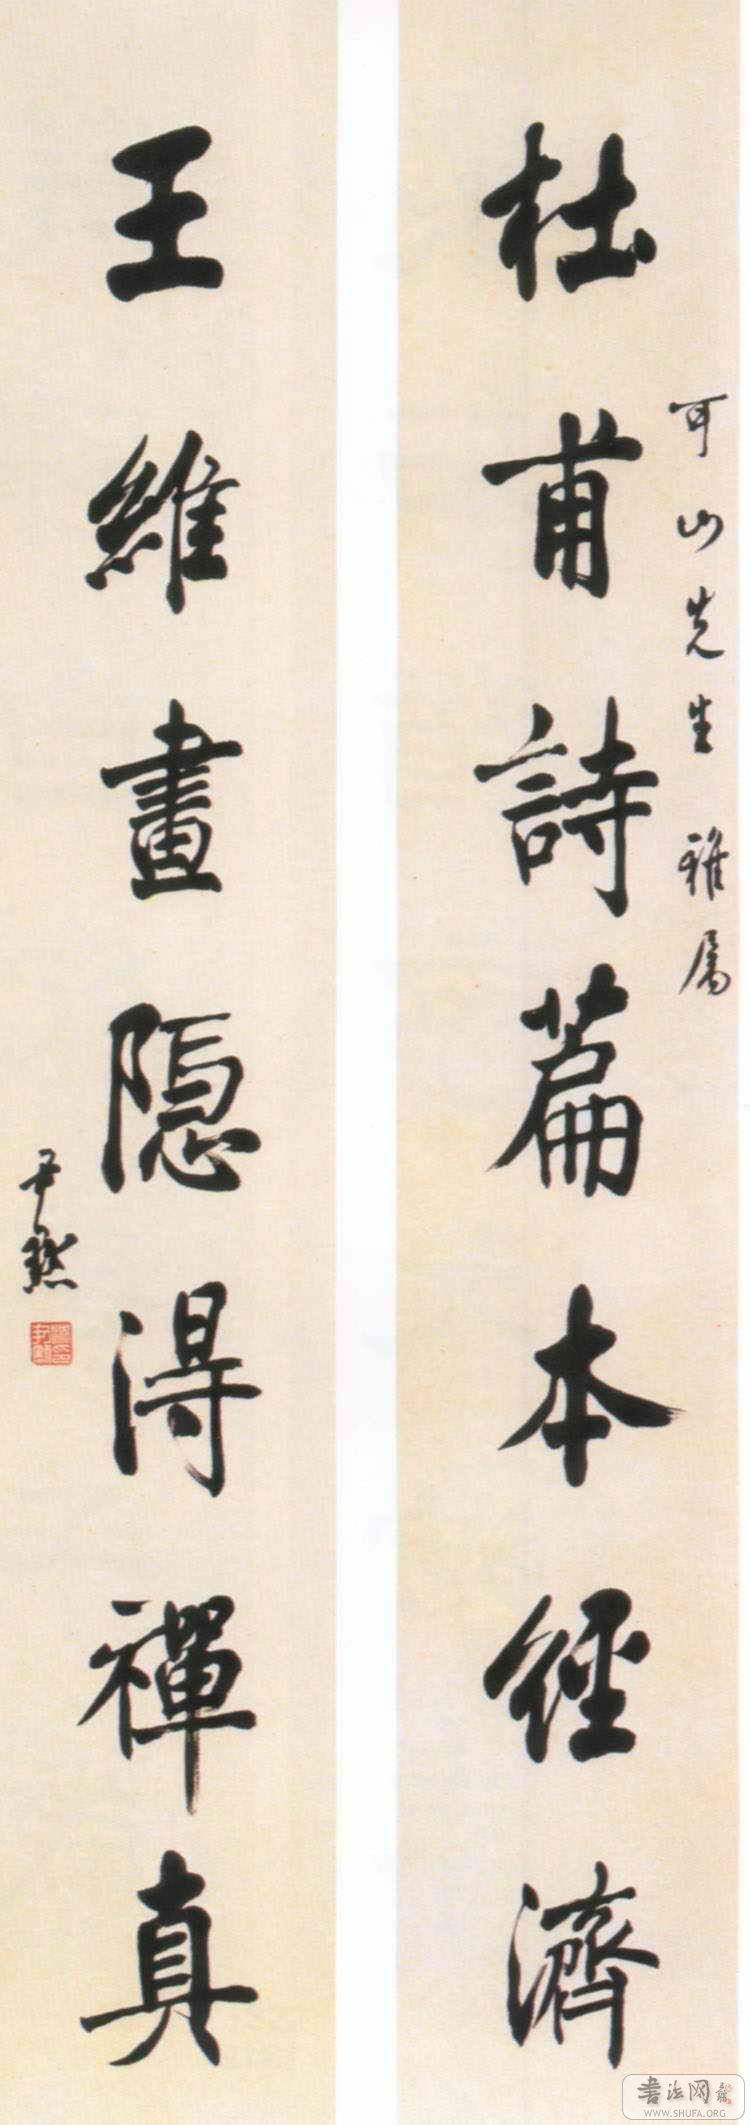 杜甫詩篇本經濟
可山先生雅屬
王維畫隱得禪真
尹默
書法网
WWW.SHUFA.ORG